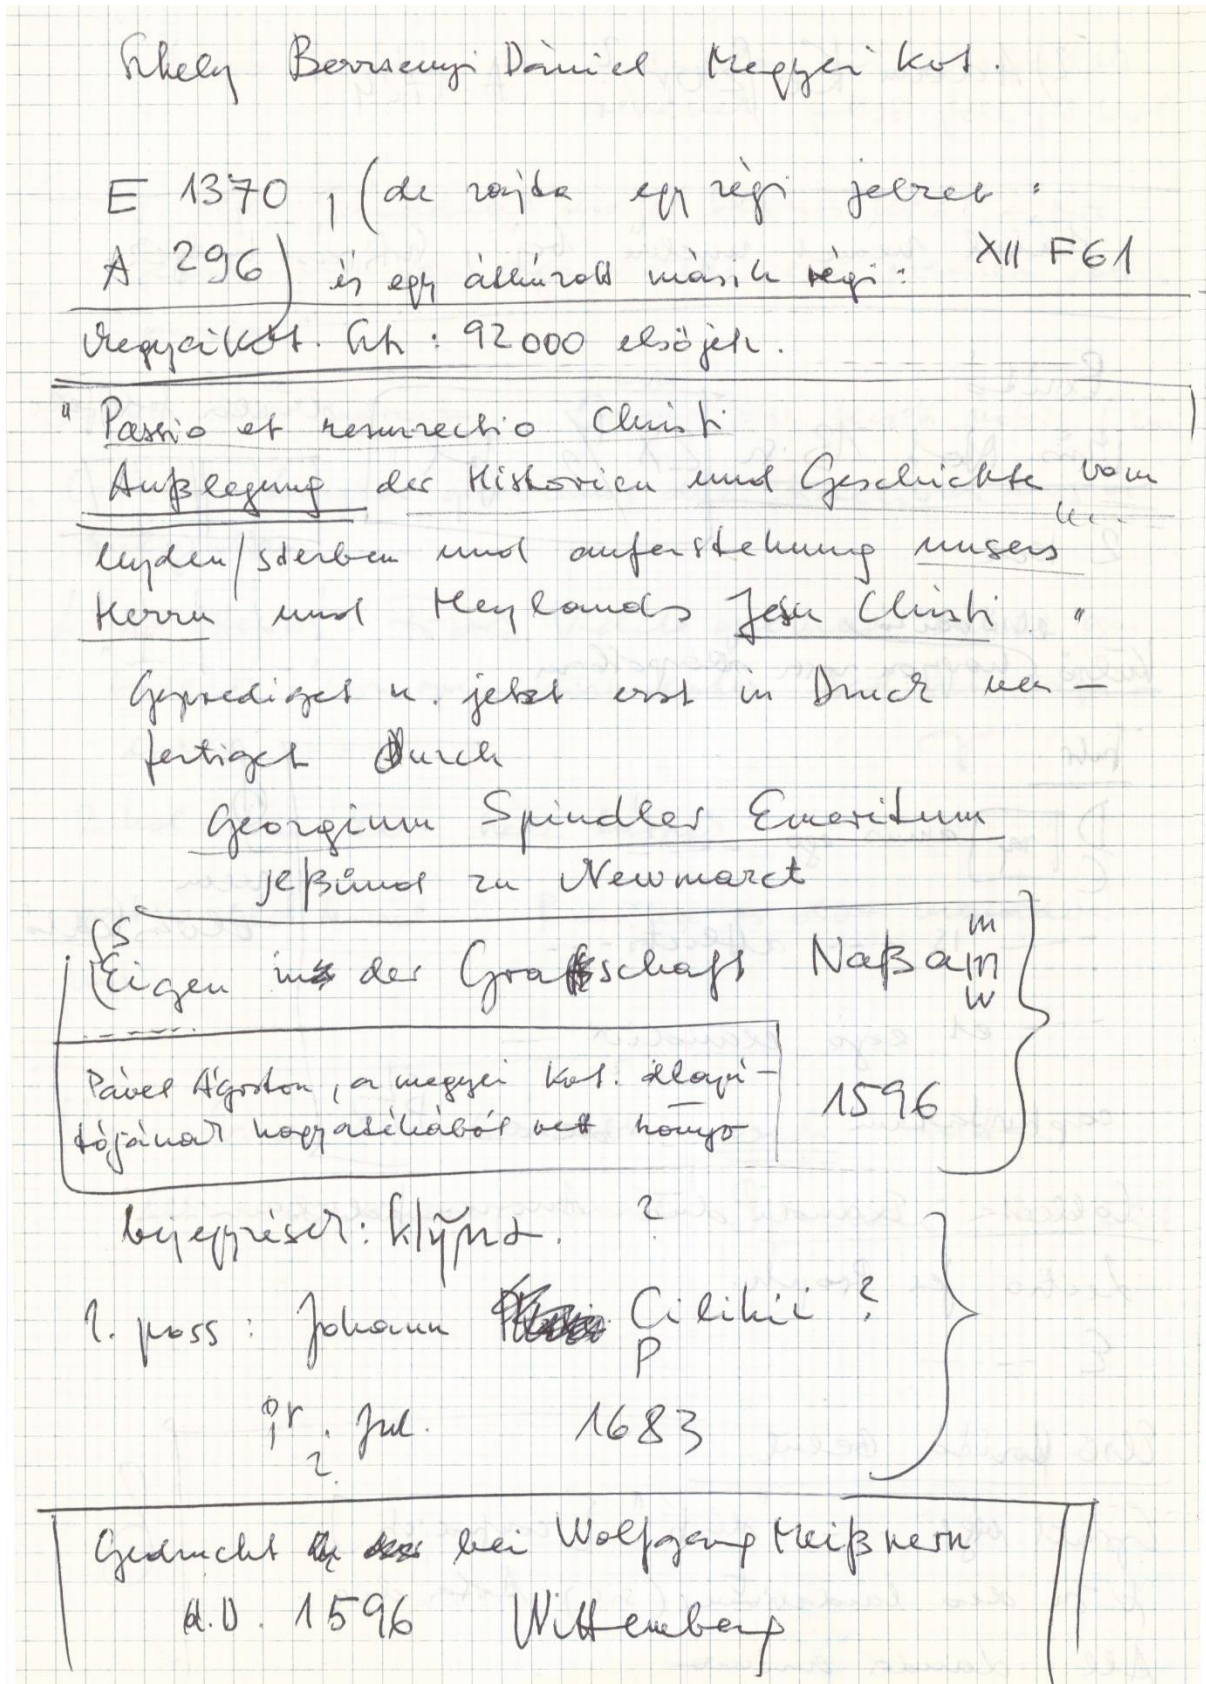 Szhely Berzsenyi Dániel Megyei Kvt.
E 1370, (de rajta egy régi jelzet:
A 296) és egy áthúzott másik régi: XII F61
Megyei Kvt. : 92000 elsőjeh.
"Passio et resurrectio Christi
Außlegung der Historien und Geschichte vom
leyden/sterben und auferstehung unsers
Herrn und Heylands Jesu Christi."
Geprediget u. jetzt erst in Druck ver-
fertiget durch
Georgium Spindler Emeritum
jeßund zu Newmarct
S
Eigen in der Grafschaft Naßam
m
w
Pável Ágoston, a megyei Kvt. alapí-
tójának hagyatékából vett könyv
1596
bejegyzések: ?
1. poss: Johann Cilikii ?
P
Jul. 1683
?
Gedruckt bei Wolfgang Meißnern
A.D. 1596 Wittemberg